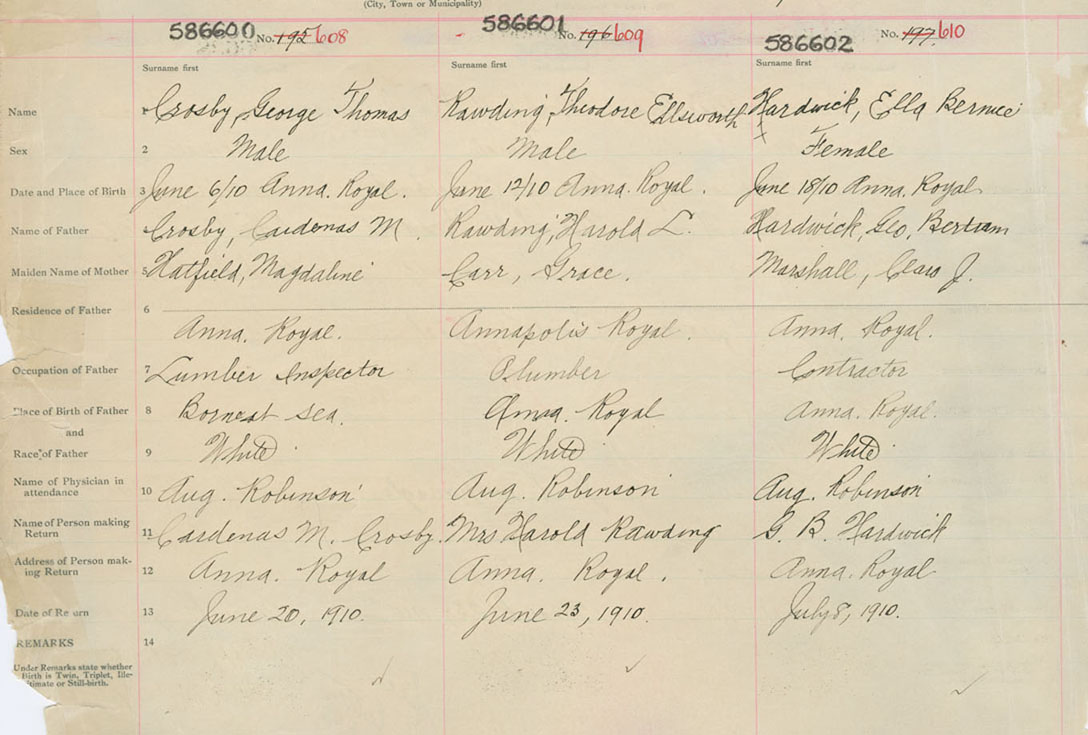 (City, Town or Municipality)
586600 No. 195 608 586601 No. 196 609 586602 No. 197 610
Surname first Surname first Surname first
Name 1 Crosby, George Thomas Rawding, Theodore Ellsworth Hardwick, Ella Bernice
Sex 2 Male Male Female
Date and Place of Birth 3 June 6/10 Anna. Royal. June 12/10 Anna. Royal. June 18/10 Anna. Royal
Name of Father 4 Crosby, Cardenas M. Rawding, Harold L. Hardwick, Geo, Bertram
Maiden Name of Mother 5 Hatfield, Magdaline Carr, Grace. Marshall, Clara J.
Residence of Father 6
Anna. Royal. Annapolis Royal. Anna. Royal.
Occupation of Father 7 Lumber Inspector Plumber Contractor
Place of Birth of Father 8 Born at sea. Anna. Royal Anna. Royal.
and
Race of Father 9 White White White
Name of Physician in
attendance 10 Aug. Robinson Aug. Robinson Aug. Robinson
Name of Person making
Return 11 Cardenas M. Crosby. Mrs Harold Rawding G. B. Hardwick
Address of Person mak-
ing Return 12 Anna. Royal Anna. Royal. Anna. Royal
Date of Return 13 June 20, 1910. June 23, 1910. July 8, 1910.
REMARKS 14
Under Remarks state whether
Birth is Twin, Triplet, Ille-
gitimate or Still-birth.